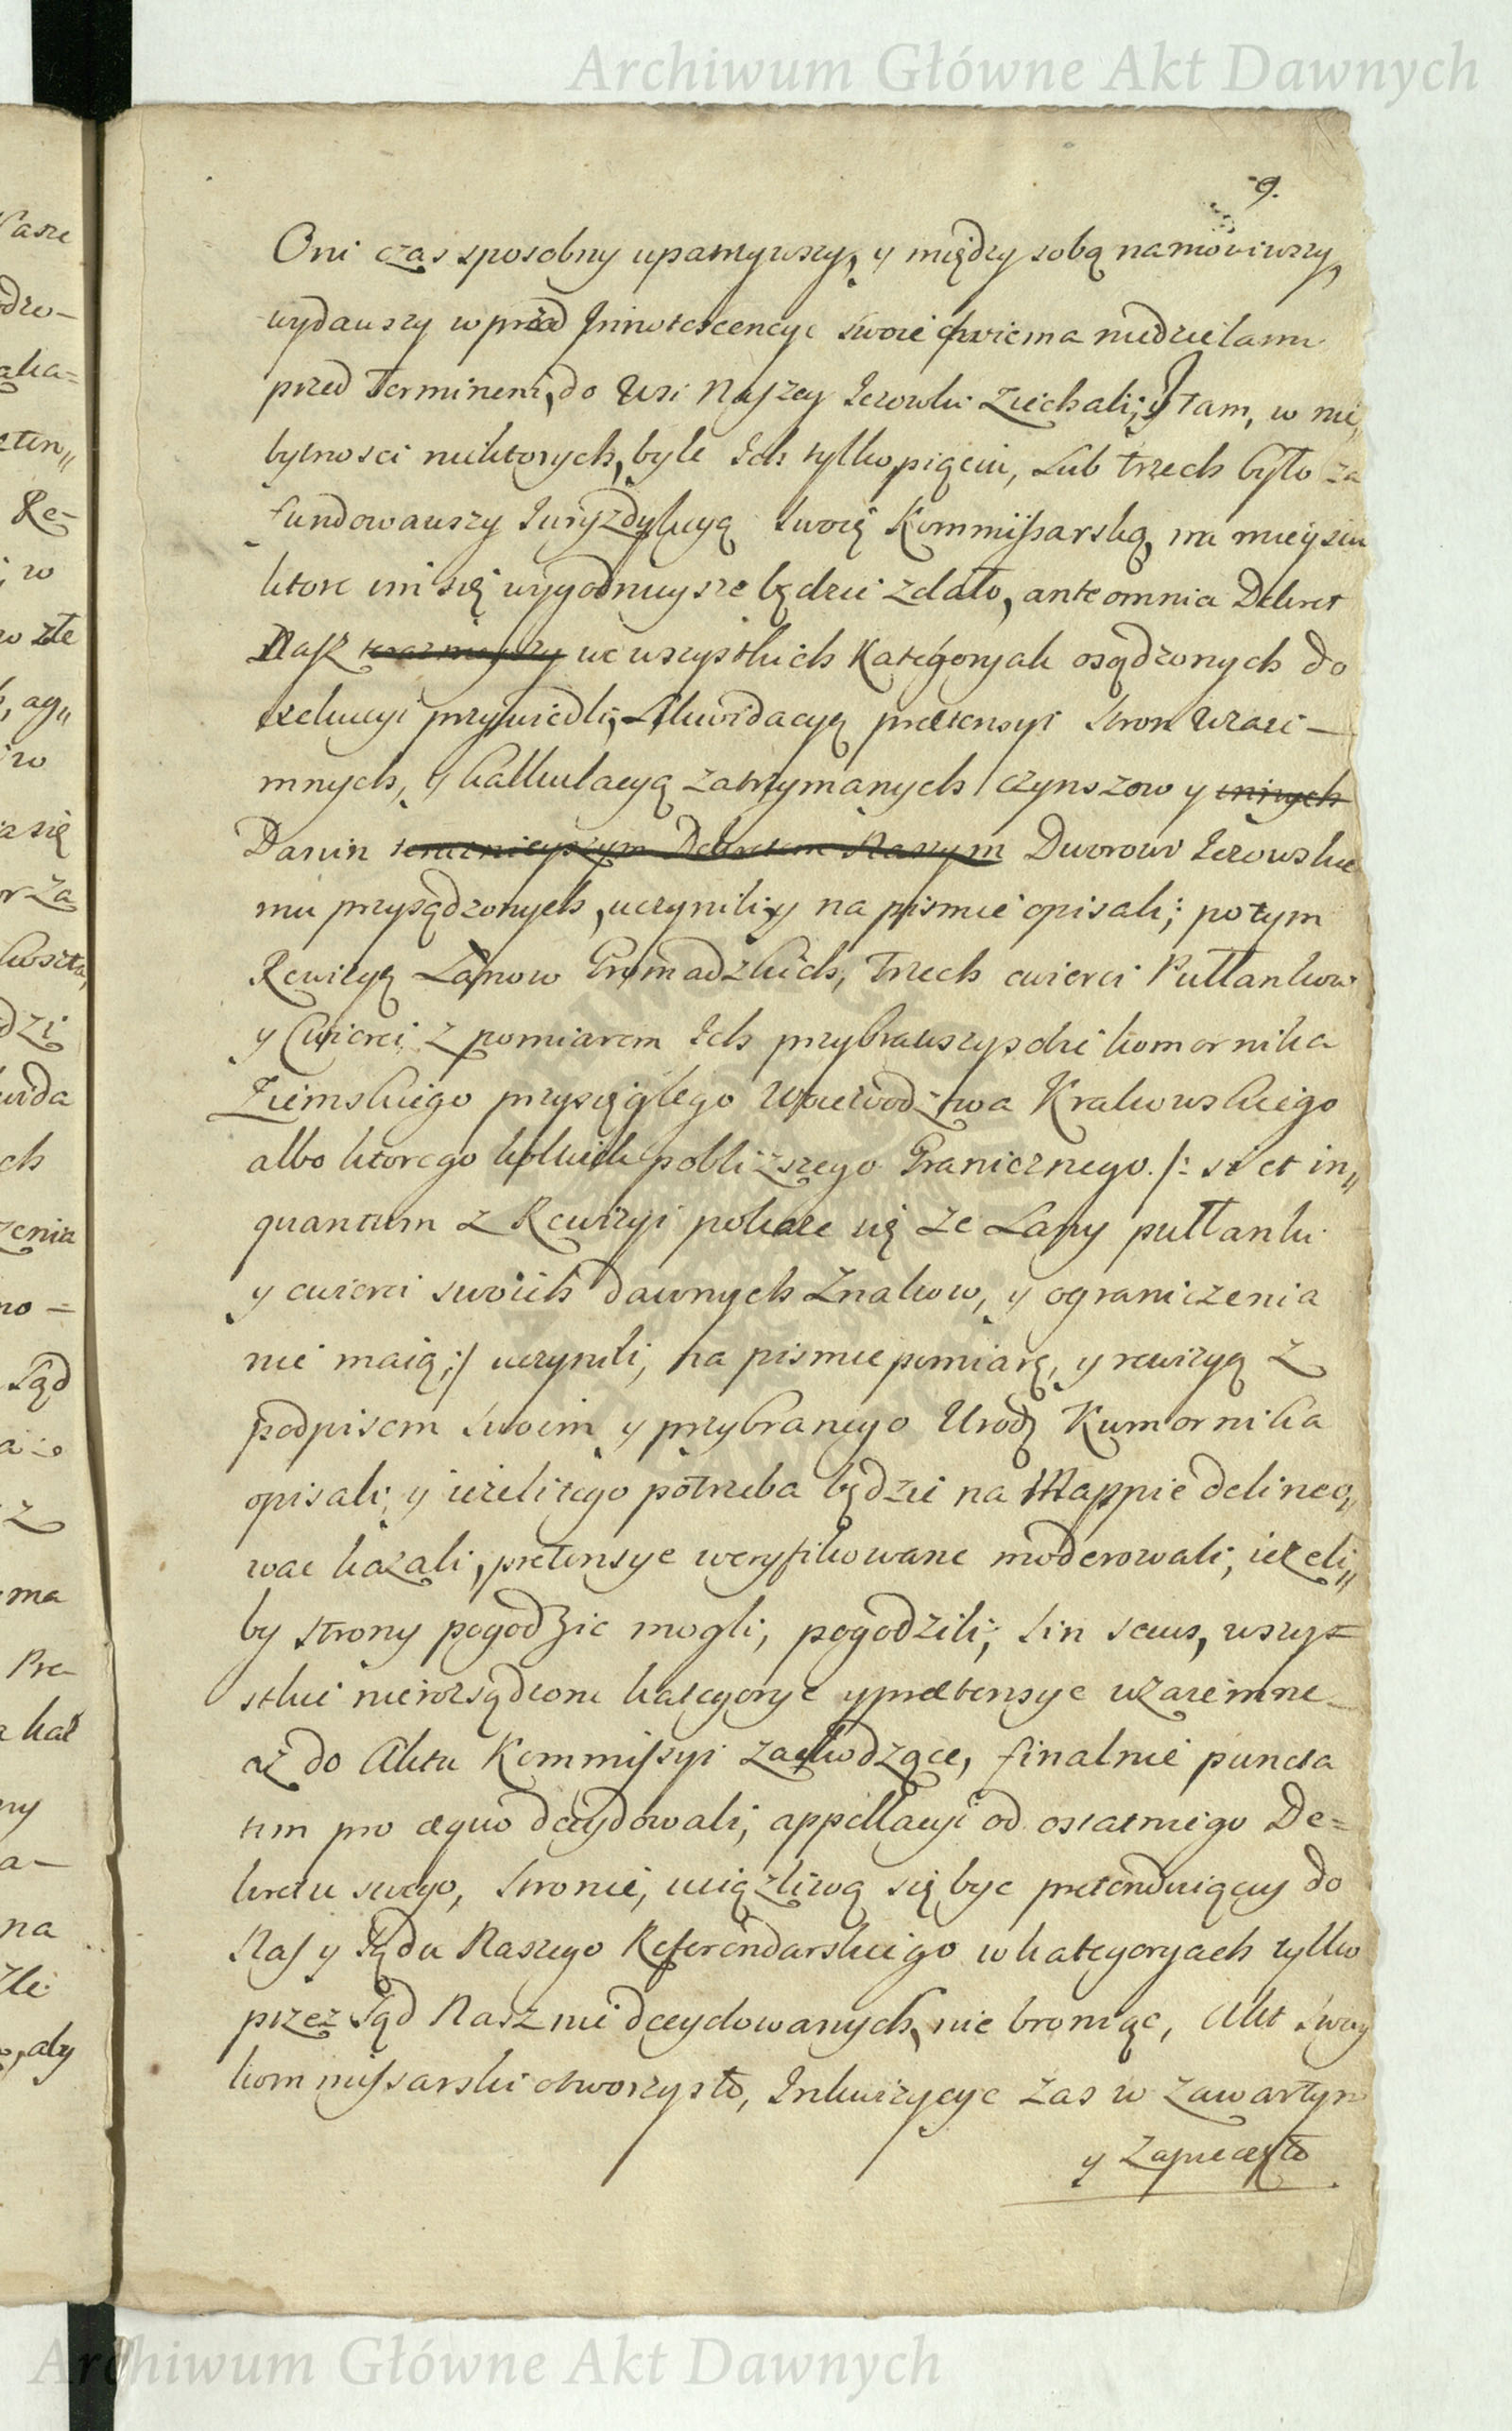 Archiwum Główne Akt Dawnych
9.
Oni czas sposobny upatrywszy, y między sobą namowiwszy,
wydawszy wprzod Innotescencye swoie dwiema niedzielami
przed Terminem, do Wsi Naszey Jezowki ziechali; y tam, w nie„
bytnosci niektorych, byle Ich tylko pięciu, Lub trzech było za
fundowawszy Juryzdykcyą swoię Kommissarską, na mieyscu
ktore im się wygodnieysze będzie zdało, ante omnia Dekret
Nasz teraznieyszy we wszystkich Kategoryach osądzonych do
exekucyi przywiedli; Likwidacyą prætensyi Stron Wzaie-
mnych, y kalkulacyą zatrzymanych czynszow y innych
Danin teraznieyszym Dekretem Naszym Dworowi Jezowskie
mu przysądzonych, uczynili, y na pismie opisali; potym
Rewizyą Łanow Gromadzkich, Trzech cwierci Pułłankow
y Cwierci z pomiarem Ich przybrawszy sobie komornika
Ziemskiego przysięgłego Woiewodztwa Krakowskiego
albo ktorego kolwiek pobliższego Granicznego /: si et in„
quantum z Rewizyi pokaze się ze Łany pułłanki
y cwierci swoich dawnych Znakow, y ograniczenia
nie maią :/ uczynili, na pismie pomiarę, y rewizyą z
podpisem swoim y przybranego Urodz Komornika
opisali, y iezeli tego potrzeba będzie na Mappie delineo„
wac kazali, pretensye weryfikowane moderowali, iezeli„
by strony pogodzic mogli, pogodzili; sin secus, wszys=
stkie nierozsądzone kategorye y prætensye wzaiemne
az do Aktu Kommissyi zachodzące, finalnie puncta
tim pro æquo decydowali; appellacyi od ostatniego De=
kretu swego, stronie, uciązliwą się byc pretenduiącey do
Nas y Sądu Naszego Referendarskiego w kategoryach tylko
przez Sąd Nasz nie decydowanych, nie broniąc, Akt Swoy
kommissarski otworzysto, Inkwizycye zas w zawartym
y Zapieczęto
Archiwum Główne Akt Dawnych